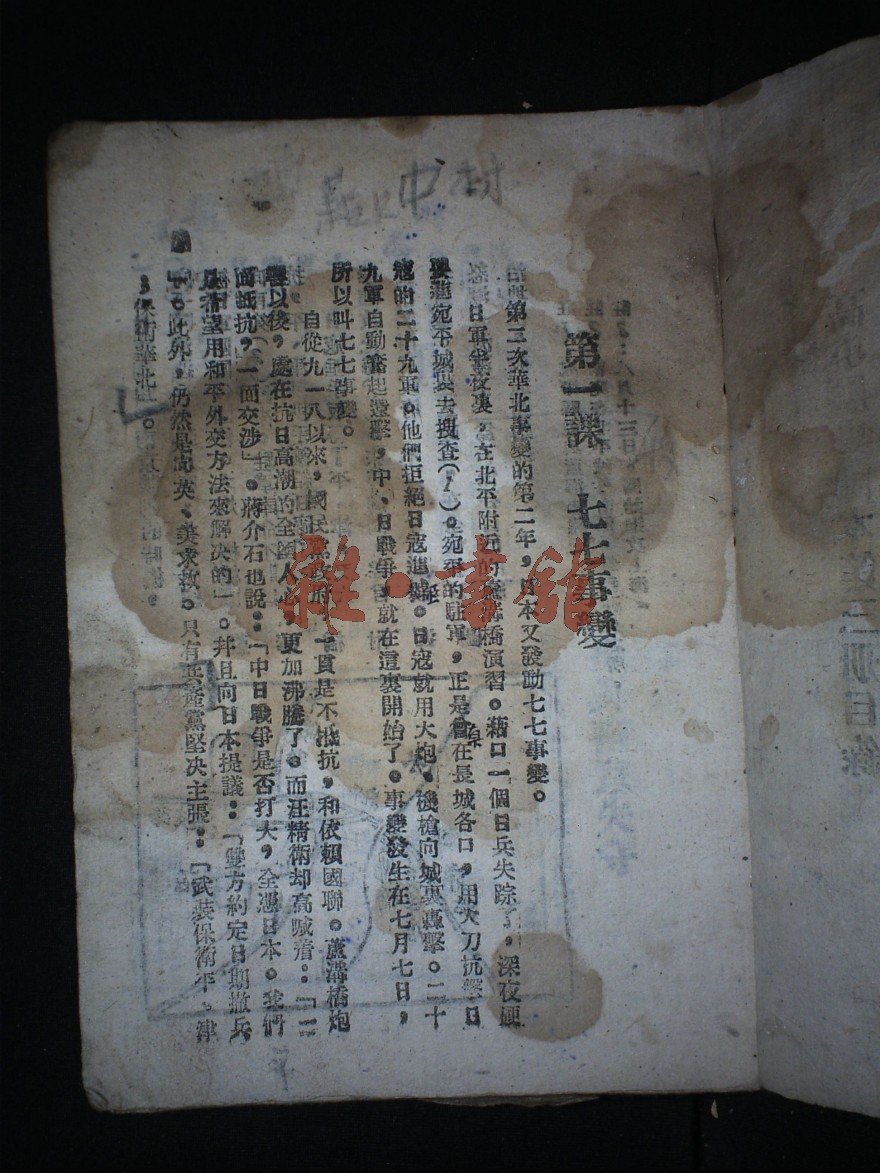 第一課 七七事變
第三次華北事變的第二年，日本又發動七七事變。
日軍黑夜裏，在北平附近的蘆溝橋演習。藉口一個日兵失踪了，深夜便
要進宛平城裏去搜查（1）。宛平的駐軍，正是曾在長城各口，用大刀抗擊日
寇的二十九軍。他們拒絕日寇進城。日寇就用大炮，機槍向城裏轟擊。二十
九軍自動奮起還擊，中、日戰爭就在這裏開始了。事變發生在七月七日，
所以叫七七事變。
自從九一八以來，國民黨政府，一貫是不抵抗，和依賴國聯。蘆溝橋炮
聲以後，處在抗日高潮的全國人心，更加沸騰了。而汪精衛却高喊着：「一
面抵抗，一面交涉」。蔣介石也說：「中日戰爭是否打大，全憑日本。我們
是希望用和平外交方法來解決的」。幷且向日本提議：「雙方約定日期撤兵
」。此外，仍然是向英、美求救。只有共產黨堅决主張：「武裝保衛平、津
，保衛華北
雜·書館